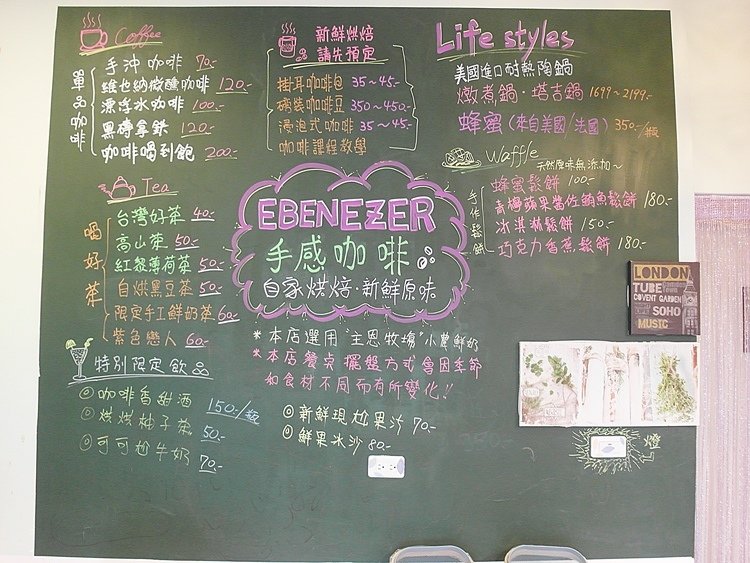 Coffee
單品咖啡
手沖咖啡 70.-
維也納微醺咖啡 120.-
漂浮冰咖啡 100.-
黑磚拿鉄 120.-
咖啡喝到飽 200.-
Tea
喝好茶
台灣好茶 40.-
高山茶 50.-
紅醋薄荷茶 50.-
自烘黑豆茶 50.-
限定手工鮮奶茶 60.-
紫色戀人 60.-
特別限定飲品
◎咖啡香甜酒 150.-/瓶
◎烘烘柚子茶 50.-
◎可可尬牛奶 70.-
新鮮烘焙
請先預定
掛耳咖啡包 35~45.-
磅裝咖啡豆 350~450.-
浸泡式咖啡 35~45.-
咖啡課程教學
EBENEZER
手感咖啡
自家烘焙·新鮮原味
*本店選用"主恩牧場"小農鮮奶
*本店餐点擺盤方式會因季節
和食材不同而有所變化!!
◎新鮮現尬果汁 70.-
◎鮮果冰沙 80.-
Life styles
美國進口耐熱陶鍋
燉煮鍋·塔吉鍋 1699~2199.-
蜂蜜(來自美國/法國) 350.-/瓶
Waffle 天然原味無添加~
手作鬆餅
蜂蜜鬆餅 100.-
青檸蘋果醬佐鮪魚鬆餅 180.-
冰淇淋鬆餅 150.-
巧克力香蕉鬆餅 180.-
LONDON
TUBE
COVENT GARDEN
SOHO
MUSIC
燈